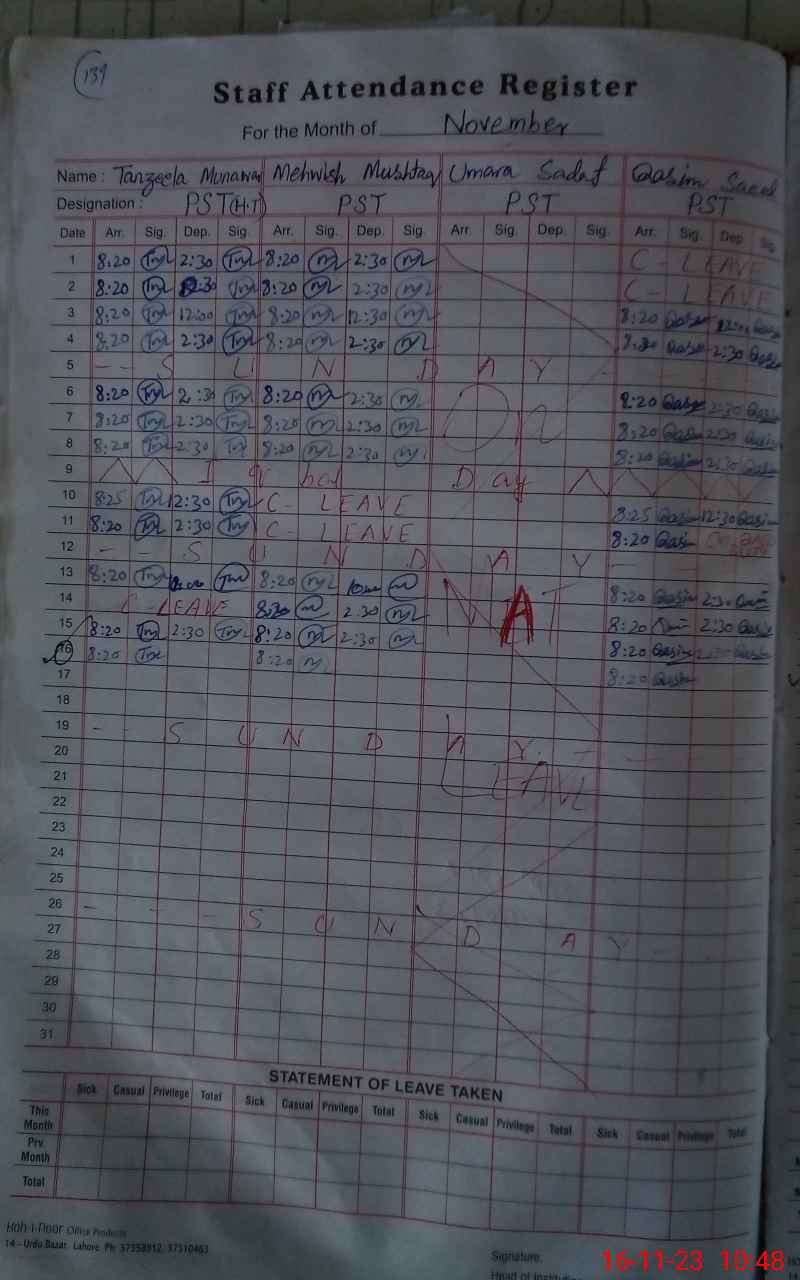 139
Staff Attendance Register
For the Month of November
Name : Tanzeela Munawar Mehwish Mushtaq Umara Sadaf Qasim Saeed
Designation : PST(H.T) PST PST PST
Date Arr. Sig. Dep. Sig. Arr. Sig. Dep. Sig. Arr. Sig. Dep. Sig. Arr. Sig. Dep Sig.
1 8:20 2:30 8:20 2:30 C - LEAVE
2 8:20 2:30 8:20 2:30 C - LEAVE
3 8:20 12:00 8:20 12:30 8:20 Qasim 12:00 Qasim
4 8:20 2:30 8:20 2:30 8:20 Qasim 2:30 Qasim
5 - - S U N D A Y -
6 8:20 2:30 8:20 2:30 On 8:20 Qasim 2:30 Qasim
7 8:20 2:30 8:20 2:30 8:20 Qasim 2:30 Qasim
8 8:20 2:30 8:20 2:30 8:20 Qasim 2:30 Qasim
9 I q bal D ay
10 8:25 12:30 C - LEAVE 8:25 Qasim 12:30 Qasim
11 8:20 2:30 C - LEAVE 8:20 Qasim
12 - - S U N D A Y
13 8:20 8:20 MAT 8:20 Qasim 2:30
14 C - LEAVE 8:20 2:30 8:20 2:30 Qasim
15 8:20 2:30 8:20 2:30 8:20 Qasim 2:30 Qasim
16 8:20 8:20 8:20 Qasim
17
18
19 - - S U N D A Y - -
20
21 LEAVE
22
23
24
25
26 - - - S U N D A Y
27
28
29
30
31
STATEMENT OF LEAVE TAKEN
Sick Casual Privilege Total Sick Casual Privilege Total Sick Casual Privilege Total Sick Casual Privilege Total
This Month
Prv. Month
Total
Koh-i-Noor Office Products
14 - Urdu Bazar, Lahore. Ph: 37358912, 37310463
Signature.
Head of Institution
16-11-23 10:48